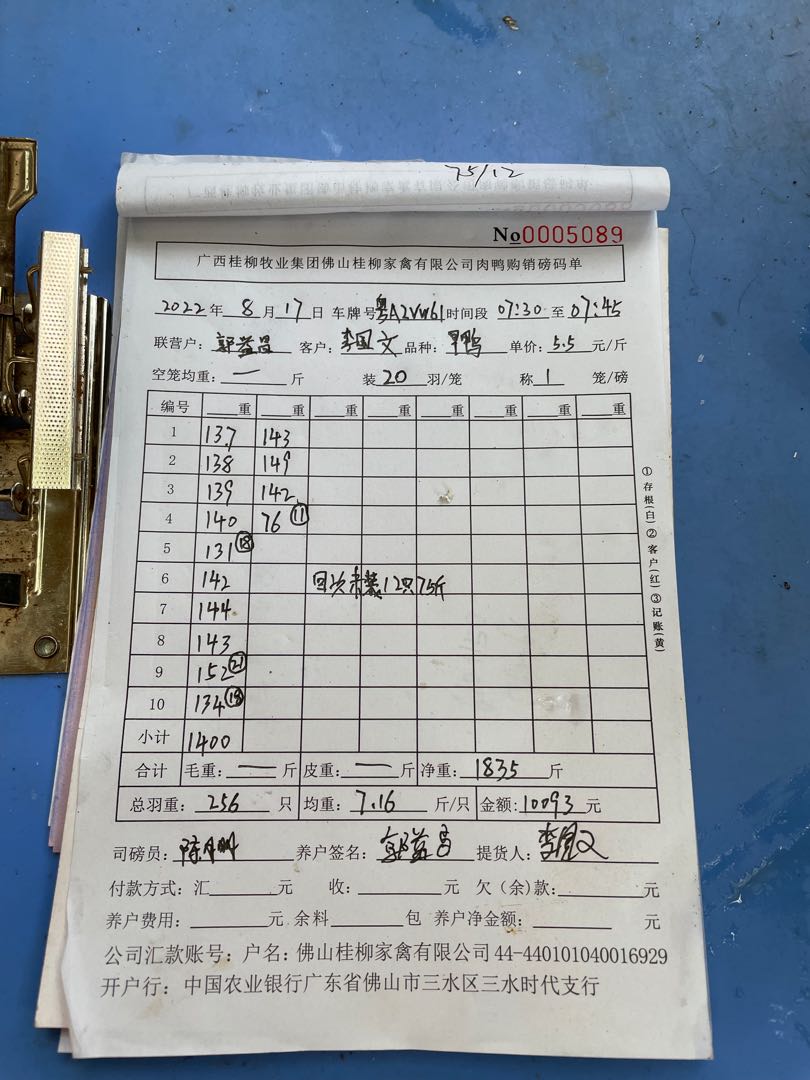 75/12
No0005089
广西桂柳牧业集团佛山桂柳家禽有限公司肉鸭购销磅码单
2022年 8月 17日 车牌号 粤A2VW61 时间段 07:30 至 07:45
联营户: 郭益昌 客户: 李国文 品种: 鸭 单价: 5.5 元/斤
空笼均重: 一 斤 装 20 羽/笼 称 1 笼/磅
编号 重 重 重 重 重 重 重 重
1 137 143
2 138 149
3 139 142
4 140 76 ⑪
5 131 ⑱
6 142 回次未装12只75斤
7 144
8 143
9 152 ㉑
10 134
小计 1400
合计 毛重: 一 斤 皮重: 一 斤 净重: 1835 斤
总羽重: 256 只 均重: 7.16 斤/只 金额: 10093 元
司磅员: 陈 养户签名: 郭益昌 提货人: 李国文
付款方式: 汇 元 收: 元 欠(余)款: 元
养户费用: 元 余料 包 养户净金额: 元
公司汇款账号: 户名: 佛山桂柳家禽有限公司 44-440101040016929
开户行: 中国农业银行广东省佛山市三水区三水时代支行
①存根(白)②客户(红)③记账(黄)